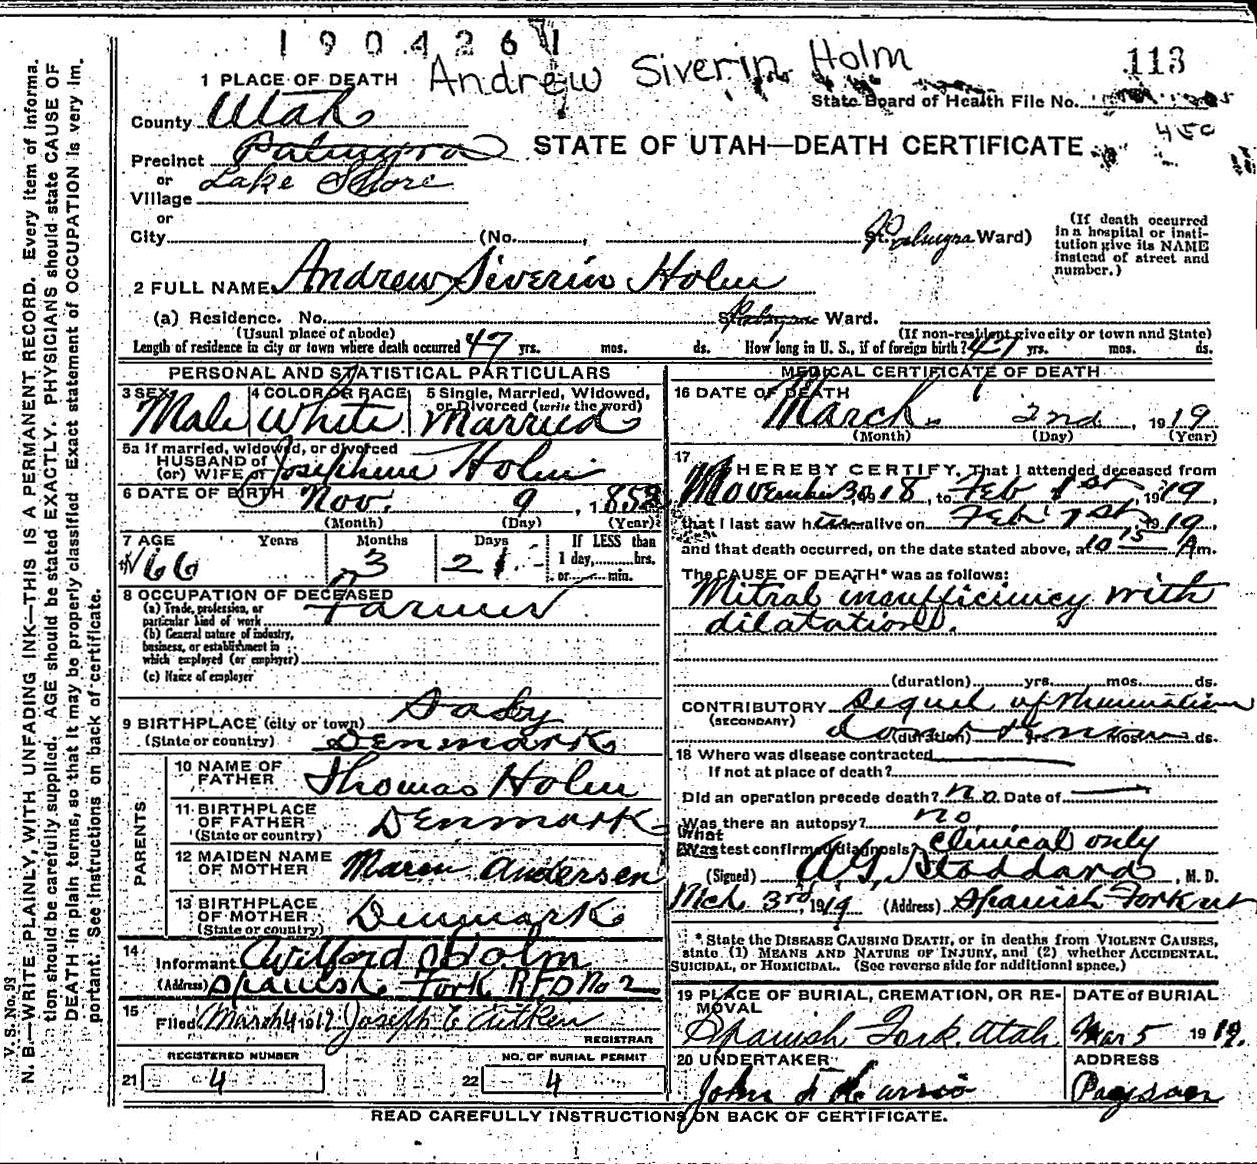 1904261
Andrew Siverin Holm
113
1 PLACE OF DEATH
State Board of Health File No.
450
County Utah
STATE OF UTAH—DEATH CERTIFICATE
Precinct Palmyra
or Lake Shore
Village
or
City (No. , St. Palmyra Ward)
(If death occurred in a hospital or institution give its NAME instead of street and number.)
2 FULL NAME Andrew Siverin Holm
(a) Residence. No. St. Palmyra Ward.
(Usual place of abode) (If non-resident give city or town and State)
Length of residence in city or town where death occurred 47 yrs. mos. ds. How long in U. S., if of foreign birth? 47 yrs. mos. ds.
PERSONAL AND STATISTICAL PARTICULARS
3 SEX Male
4 COLOR OR RACE White
5 Single, Married, Widowed, or Divorced (write the word) Married
5a If married, widowed, or divorced
HUSBAND of
(or) WIFE of Josephine Holm
6 DATE OF BIRTH Nov. 9, 1852
(Month) (Day) (Year)
7 AGE Years Months Days If LESS than
66 3 21 1 day, hrs.
or min.
8 OCCUPATION OF DECEASED
(a) Trade, profession, or
particular kind of work Farmer
(b) General nature of industry,
business, or establishment in
which employed (or employer)
(c) Name of employer
9 BIRTHPLACE (city or town)
(State or country) Denmark
PARENTS
10 NAME OF
FATHER Thomas Holm
11 BIRTHPLACE
OF FATHER Denmark
(State or country)
12 MAIDEN NAME
OF MOTHER Maren Andersen
13 BIRTHPLACE
OF MOTHER Denmark
(State or country)
14
Informant Wilford Holm
(Address) Spanish Fork R.F.D No 2
15
Filed March 4 1919 Joseph E Aitken
REGISTRAR
REGISTERED NUMBER NO. OF BURIAL PERMIT
21 4 22 4
MEDICAL CERTIFICATE OF DEATH
16 DATE OF DEATH
March 2nd, 1919
(Month) (Day) (Year)
17
I HEREBY CERTIFY, That I attended deceased from
November 30, 1918, to Feb 1st, 1919,
that I last saw him alive on Feb 1st, 1919,
and that death occurred, on the date stated above, at 10 15 A m.
The CAUSE OF DEATH* was as follows:
Mitral insufficiency with
dilatation.
(duration) yrs. mos. ds.
CONTRIBUTORY Sequel of rheumatism
(SECONDARY)
(duration) yrs. mos. ds.
18 Where was disease contracted
If not at place of death?
Did an operation precede death? no Date of
Was there an autopsy? no
What test confirmed diagnosis? clinical only
(Signed) A G, Stoddard, M. D.
Mch 3rd, 1919 (Address) Spanish Fork ut
* State the DISEASE CAUSING DEATH, or in deaths from VIOLENT CAUSES,
state (1) MEANS AND NATURE OF INJURY, and (2) whether ACCIDENTAL,
SUICIDAL, or HOMICIDAL. (See reverse side for additional space.)
19 PLACE OF BURIAL, CREMATION, OR RE-
MOVAL DATE of BURIAL
Spanish Fork Utah Mar 5 1919.
20 UNDERTAKER ADDRESS
John Payson
READ CAREFULLY INSTRUCTIONS ON BACK OF CERTIFICATE.
V. S. No. 93
N. B.—WRITE PLAINLY, WITH UNFADING INK—THIS IS A PERMANENT RECORD. Every item of informa-
tion should be carefully supplied. AGE should be stated EXACTLY. PHYSICIANS should state CAUSE OF
DEATH in plain terms, so that it may be properly classified Exact statement of OCCUPATION is very im-
portant. See instructions on back of certificate.